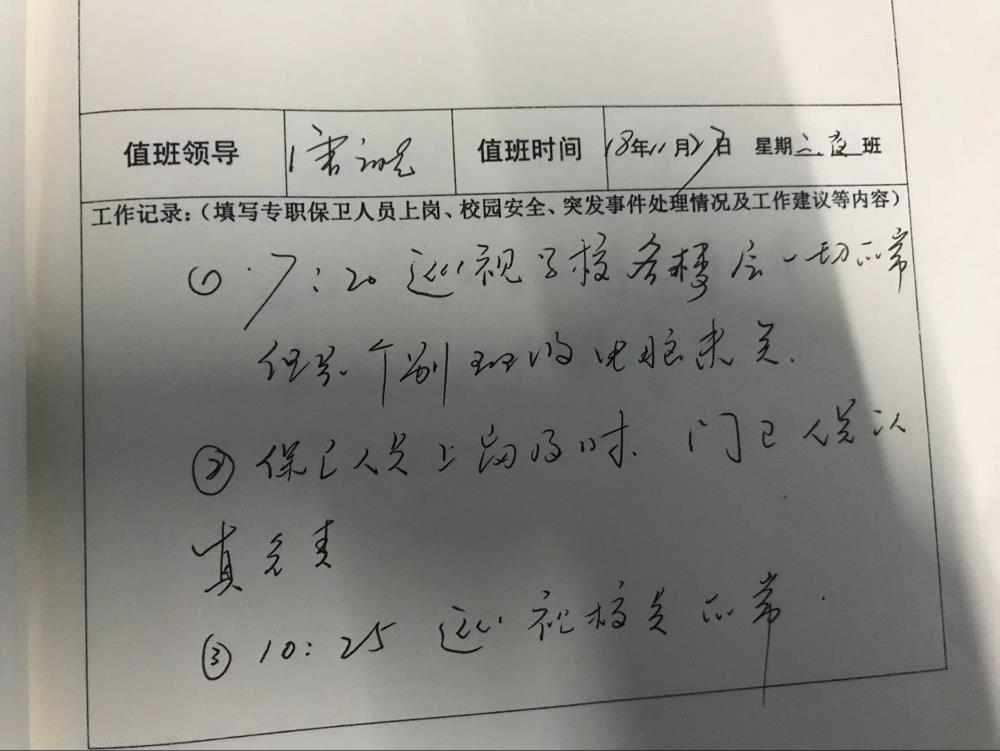 值班领导 值班时间 18年11月27日 星期二夜班
工作记录:(填写专职保卫人员上岗、校园安全、突发事件处理情况及工作建议等内容)
① 7:20 巡视学校各楼层一切正常
但是个别班级电脑未关.
② 保卫人员上岗及时. 门卫人员认
真负责
③ 10:25 巡视校园正常.